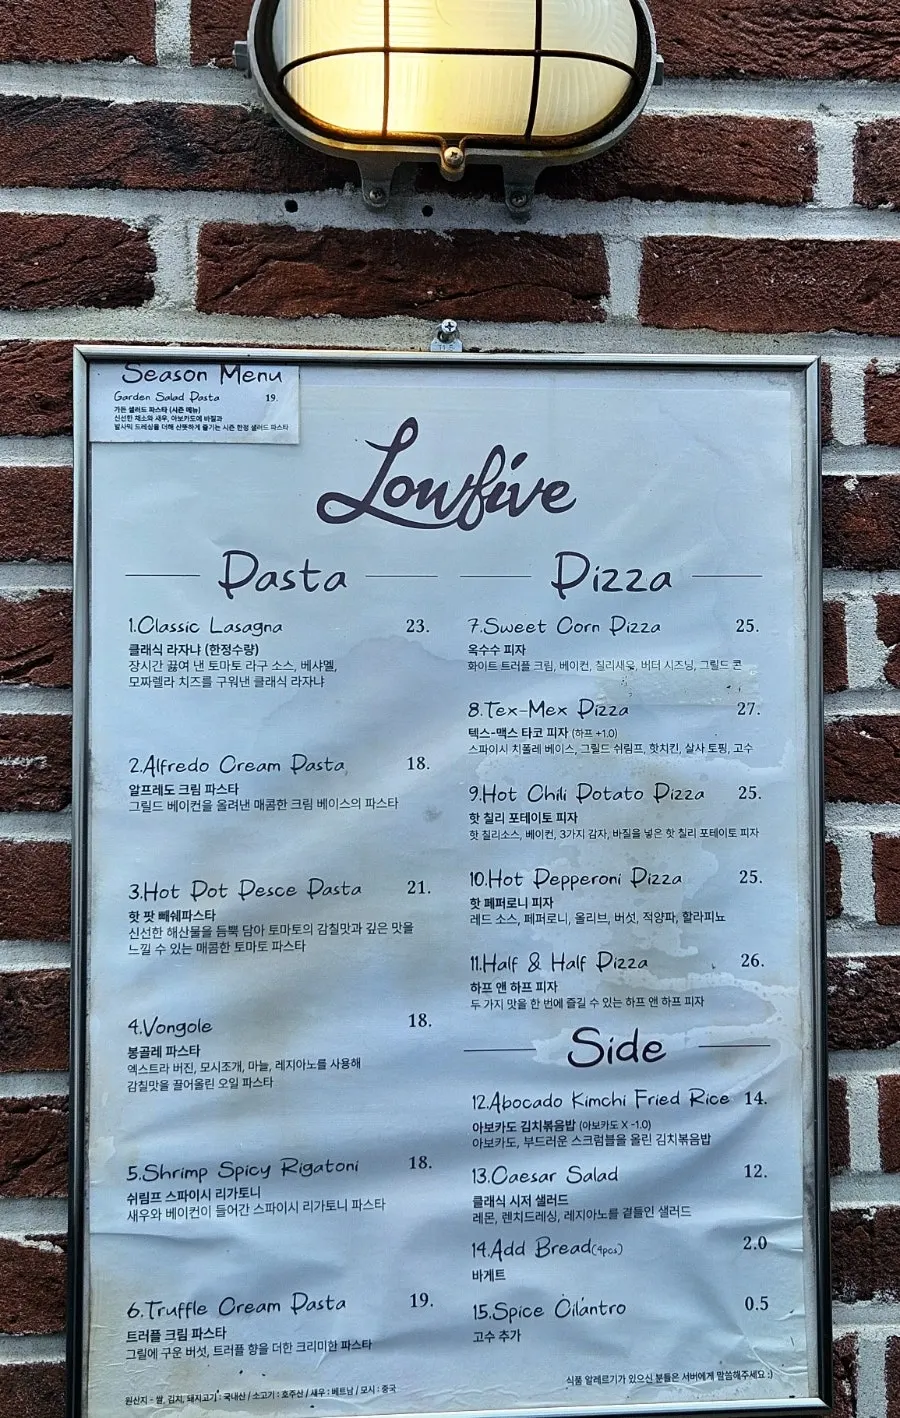 Season Menu
Garden Salad Pasta 19.
가든 샐러드 파스타 (시즌 메뉴)
신선한 채소와 새우, 아보카도에 바질과
발사믹 드레싱을 더해 산뜻하게 즐기는 시즌 한정 샐러드 파스타
Lowfive
Pasta
1.Classic Lasagna 23.
클래식 라자냐 (한정수량)
장시간 끓여 낸 토마토 라구 소스, 베샤멜,
모짜렐라 치즈를 구워낸 클래식 라자냐
2.Alfredo Cream Pasta 18.
알프레도 크림 파스타
그릴드 베이컨을 올려낸 매콤한 크림 베이스의 파스타
3.Hot Pot Pesce Pasta 21.
핫 팟 빼쉐파스타
신선한 해산물을 듬뿍 담아 토마토의 감칠맛과 깊은 맛을
느낄 수 있는 매콤한 토마토 파스타
4.Vongole 18.
봉골레 파스타
엑스트라 버진, 모시조개, 마늘, 레지아노를 사용해
감칠맛을 끌어올린 오일 파스타
5.Shrimp Spicy Rigatoni 18.
쉬림프 스파이시 리가토니
새우와 베이컨이 들어간 스파이시 리가토니 파스타
6.Truffle Cream Pasta 19.
트러플 크림 파스타
그릴에 구운 버섯, 트러플 향을 더한 크리미한 파스타
원산지 - 쌀, 김치, 돼지고기 : 국내산 / 소고기 : 호주산 / 새우 : 베트남 / 모시 : 중국
Pizza
7.Sweet Corn Pizza 25.
옥수수 피자
화이트 트러플 크림, 베이컨, 칠리새우, 버터 시즈닝, 그릴드 콘
8.Tex-Mex Pizza 27.
텍스-맥스 타코 피자 (하프 +1.0)
스파이시 치폴레 베이스, 그릴드 쉬림프, 핫치킨, 살사 토핑, 고수
9.Hot Chili Potato Pizza 25.
핫 칠리 포테이토 피자
핫 칠리소스, 베이컨, 3가지 감자, 바질을 넣은 핫 칠리 포테이토 피자
10.Hot Pepperoni Pizza 25.
핫 페퍼로니 피자
레드 소스, 페퍼로니, 올리브, 버섯, 적양파, 할라피뇨
11.Half & Half Pizza 26.
하프 앤 하프 피자
두 가지 맛을 한 번에 즐길 수 있는 하프 앤 하프 피자
Side
12.Abocado Kimchi Fried Rice 14.
아보카도 김치볶음밥 (아보카도 X -1.0)
아보카도, 부드러운 스크럼블을 올린 김치볶음밥
13.Caesar Salad 12.
클래식 시저 샐러드
레몬, 렌치드레싱, 레지아노를 곁들인 샐러드
14.Add Bread(4pcs) 2.0
바게트
15.Spice Cilantro 0.5
고수 추가
식품 알레르기가 있으신 분들은 서버에게 말씀해주세요 :)